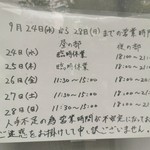 9月24日(水)から28日(日)までの営業時間
昼の部 夜の部
24日(水) 臨時休業 18:00~21
25日(木) 臨時休業 18:00~21
26日(金) 11:30~15:00 18:00~21
27日(土) 11:30~15:00 18:00~
28日(日) 11:30~15:00 18:00~
人手不足の為営業時間が不安定になって
ご迷惑をお掛けして申し訳ございません。